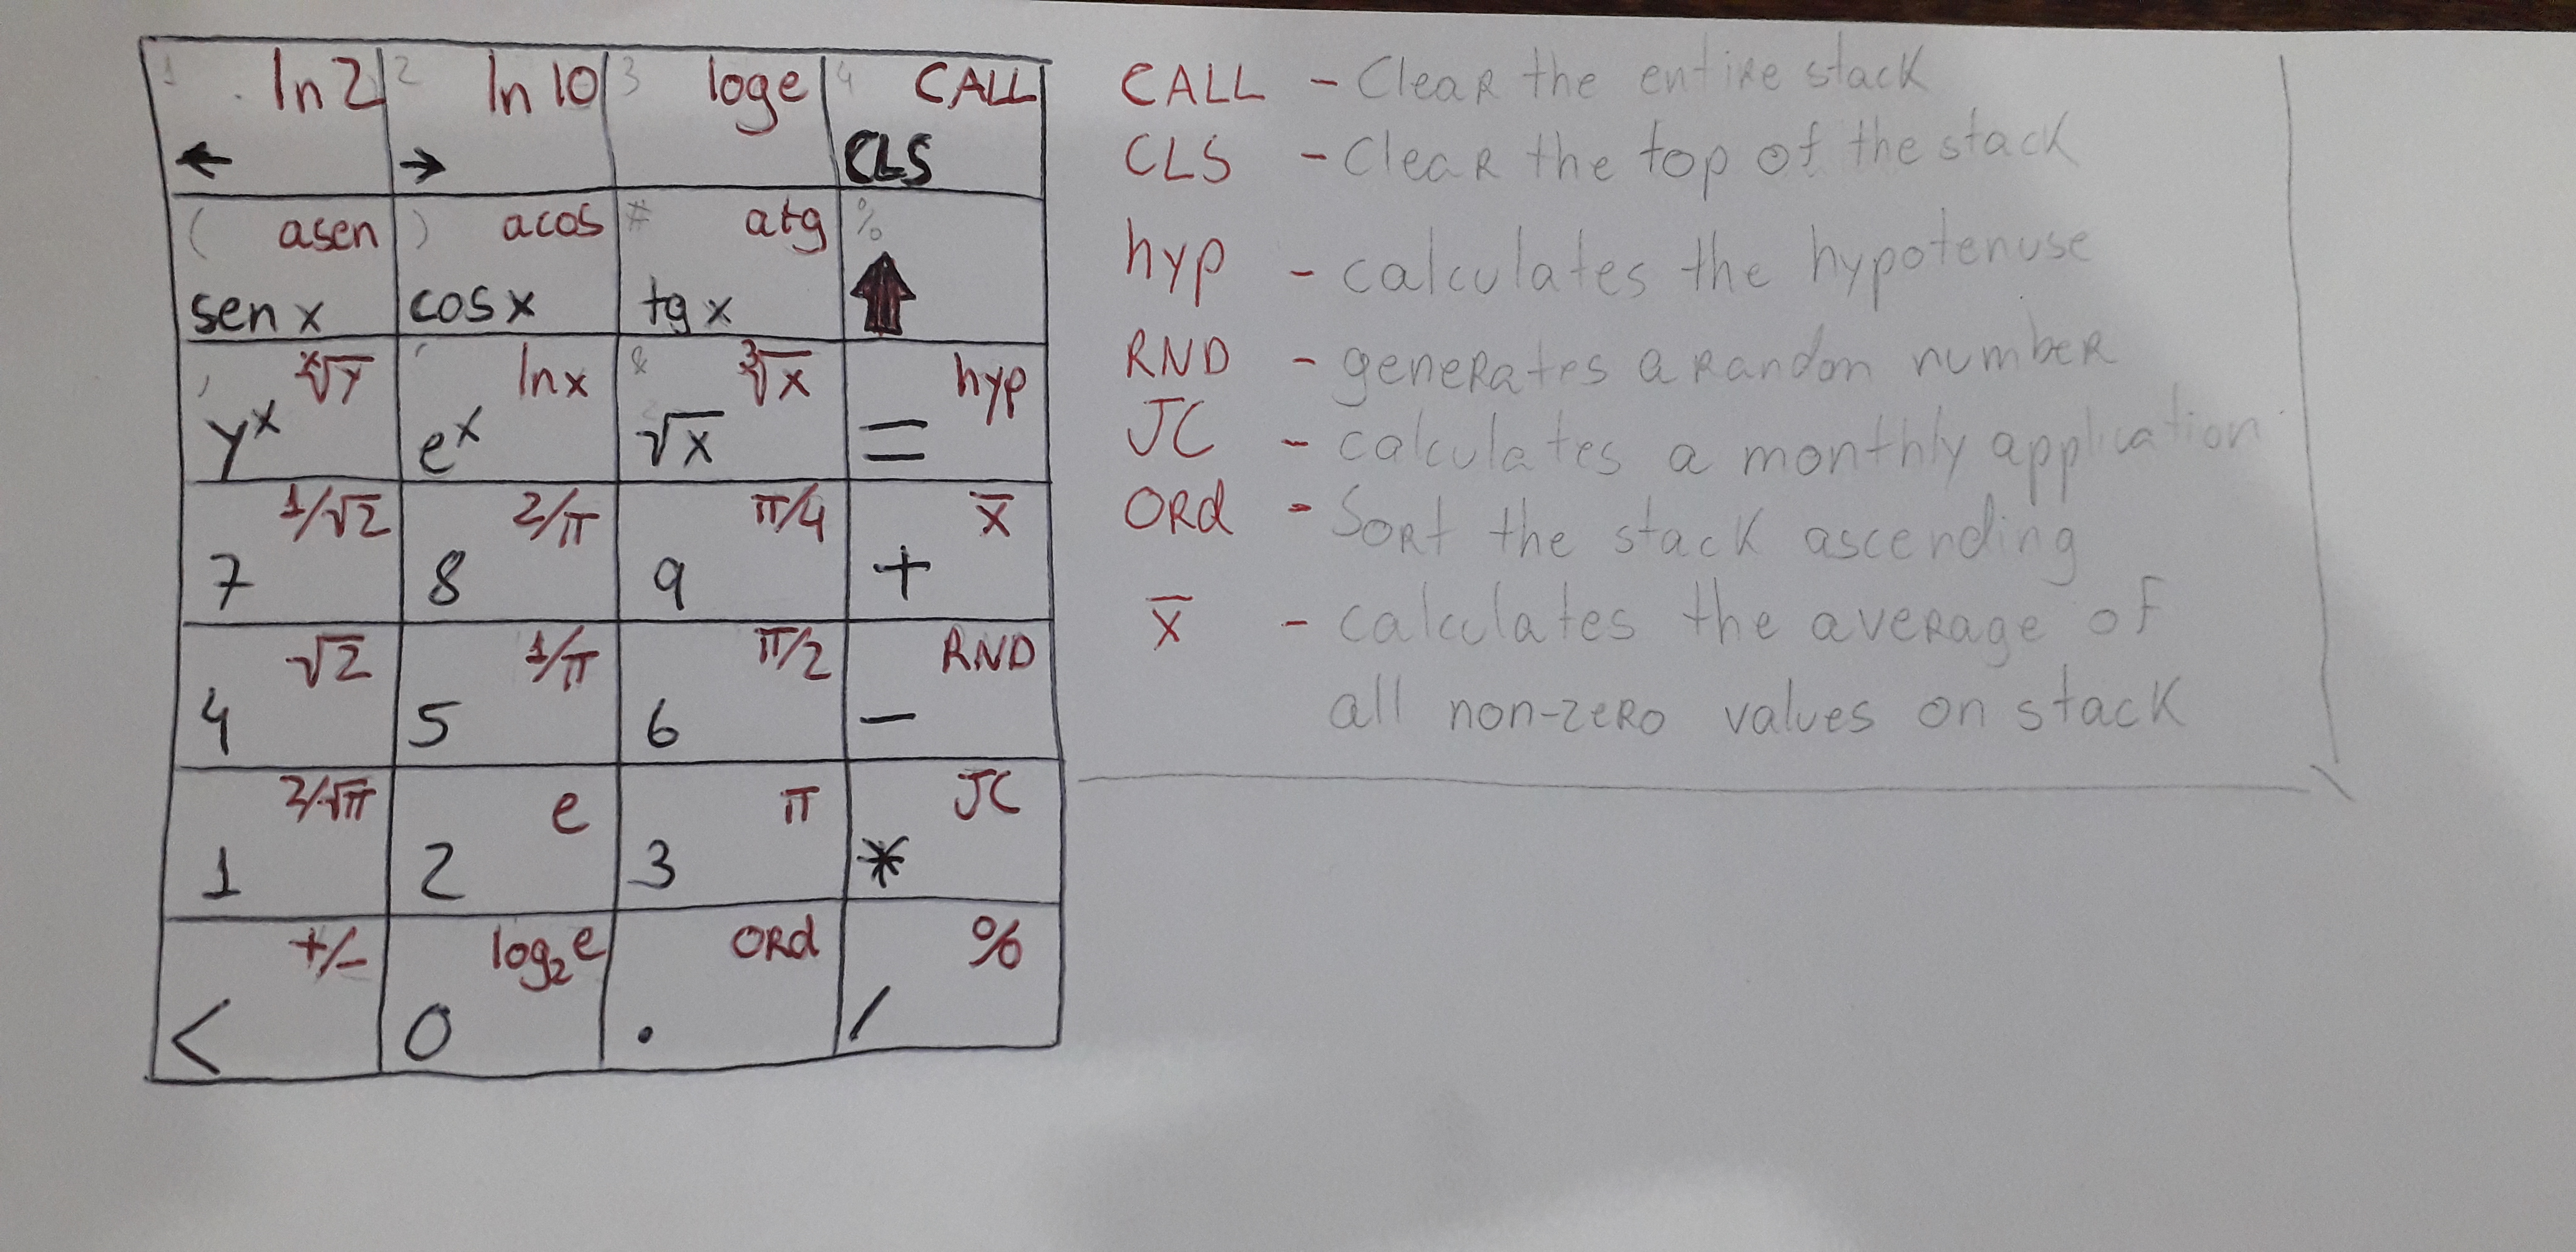 1 ln 2 2 ln 10 3 log e 4 CALL
← → CLS
( asen ) acos # atg %
sen x cos x tg x ⬆
, ˣ√y ' ln x & ³√x hyp
yˣ eˣ ²√x =
1/√2 2/π π/4 x̅
7 8 9 +
√2 1/π π/2 RND
4 5 6 −
2/√π e π JC
1 2 3 *
+/− log₂e ORd %
< 0 . /
CALL - Clear the entire stack
CLS - Clear the top of the stack
hyp - calculates the hypotenuse
RND - generates a random number
JC - calculates a monthly application
ORd - Sort the stack ascending
x̅ - calculates the average of
all non-zero values on stack